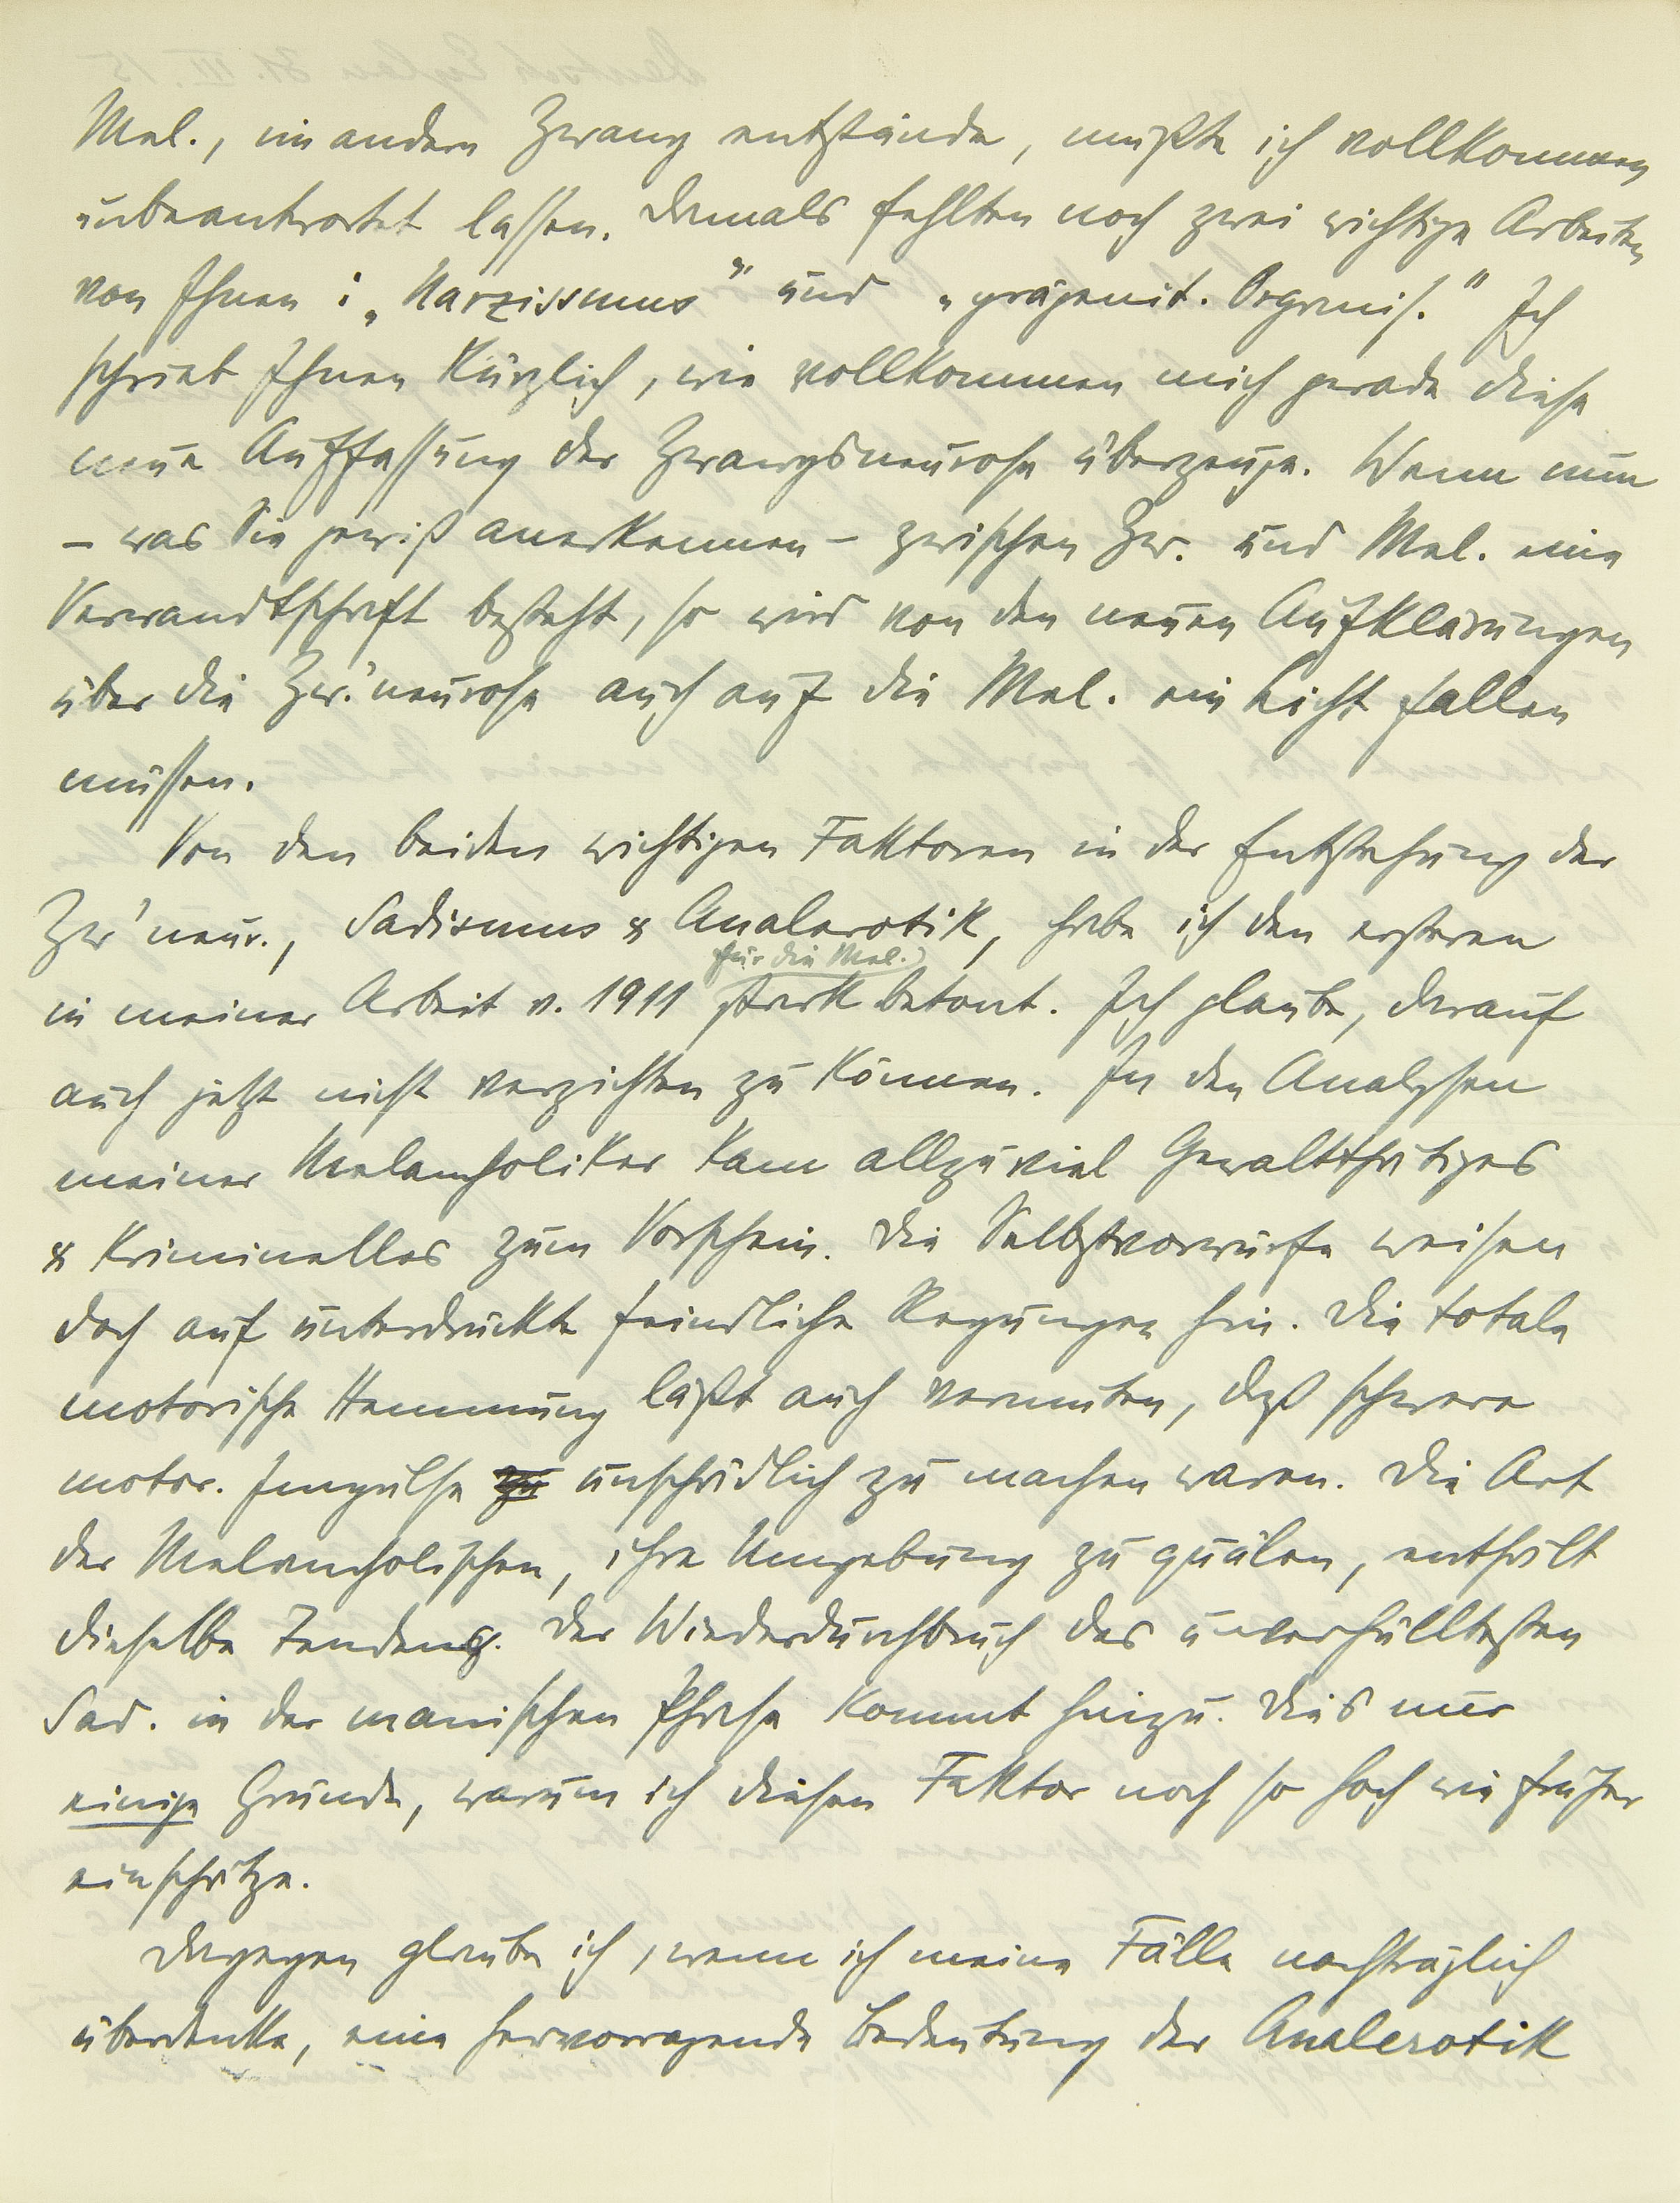 Mel., im andern Zwang entstände, mußte ich vollkommen
unbeantwortet lassen. Damals fehlten noch zwei wichtige Arbeiten
von Ihnen: „Narzissmus" und „prägenit. Organis." Ich
schrieb Ihnen kürzlich, wie vollkommen mich gerade diese
neue Auffassung der Zwangsneurose überzeuge. Wenn nun
– was Sie gewiß anerkennen – zwischen Zw. und Mel. eine
Verwandtschaft besteht, so wird von den neuen Aufklärungen
über die Zw.'neurose auch auf die Mel. ein Licht fallen
müssen.
Von den beiden wichtigen Faktoren in der Entstehung der
Zw'neur., Sadismus & Analerotik, habe ich den ersteren
in meiner Arbeit v. 1911 (für die Mel.) stark betont. Ich glaube, darauf
auch jetzt nicht verzichten zu können. In den Analysen
meiner Melancholiker kam allzuviel Gewaltthätiges
& Kriminelles zum Vorschein. Die Selbstvorwürfe weisen
doch auf unterdrückte feindliche Regungen hin. Die totale
motorische Hemmung läßt auch vermuten, daß schwere
motor. Impulse unschädlich zu machen waren. Die Art
der Melancholischen, ihre Umgebung zu quälen, enthält
dieselbe Tendenz. Der Wiederdurchbruch des unverhülltesten
Sad. in der manischen Phase kommt hinzu. Dies nur
einige Gründe, warum ich diesen Faktor noch so hoch wie früher
einschätze.
Dagegen glaube ich, wenn ich meine Fälle nachträglich
überdenke, eine hervorragende Bedeutung der Analerotik